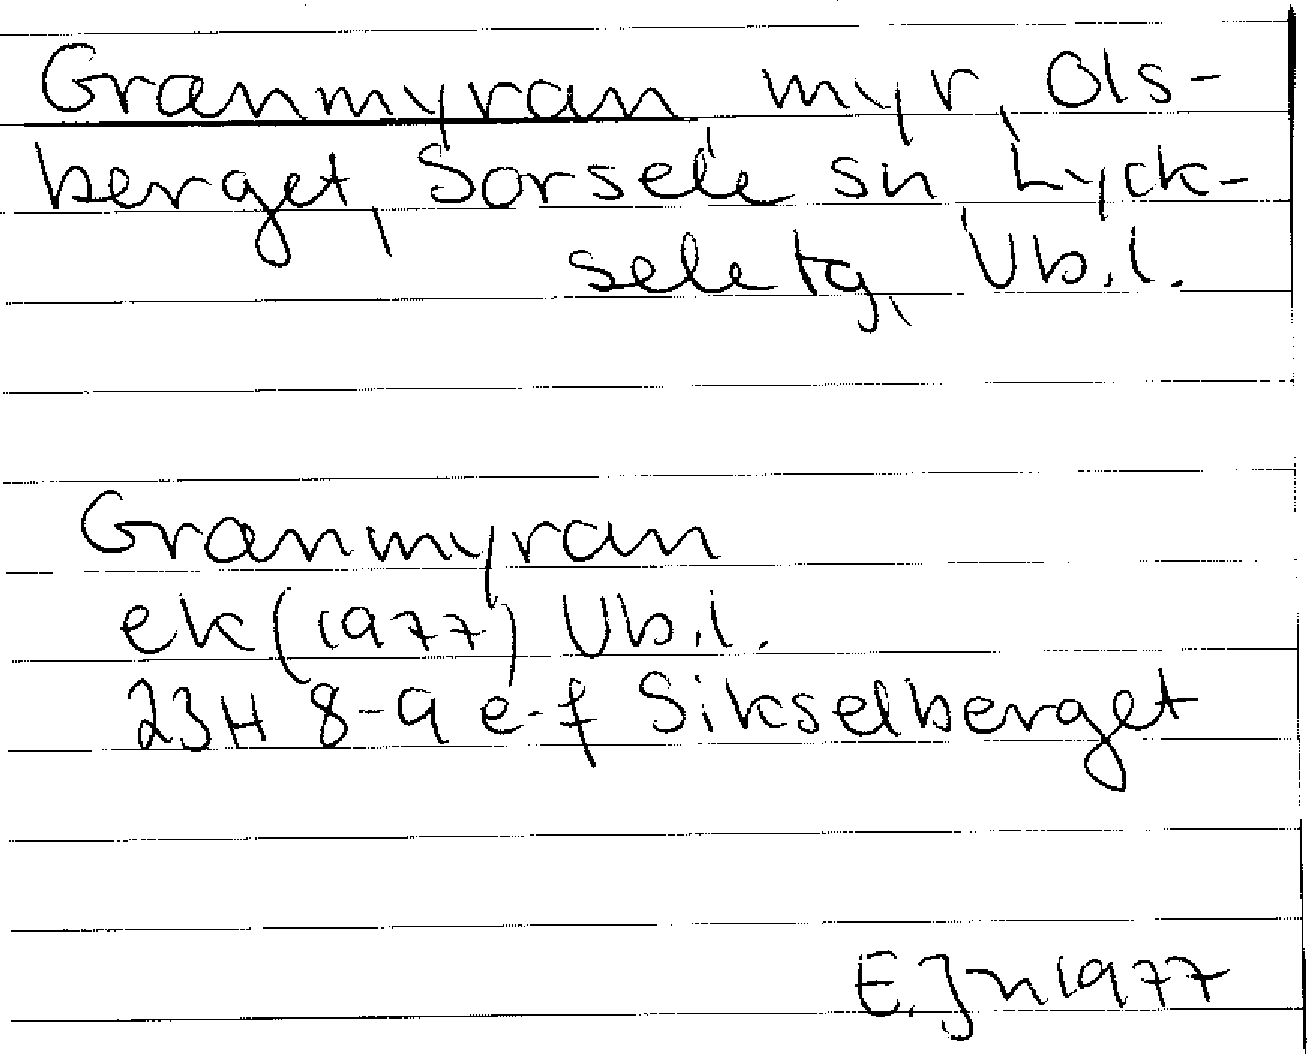 Granmyran myr, Ols-
berget, Sorsele sn Lyck-
sele tg, Vb.l.
Granmyran
ek (1977) Vb.l.
23H 8-9 e-f Sikselberget
E.Jn 1977